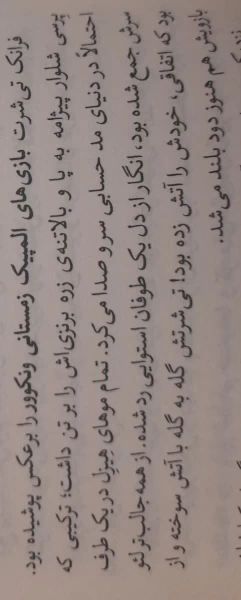 فرانک تی‌شرت بازی‌های المپیک زمستانی ونکوور را برعکس پوشیده بود.
پرسی شلوار پیژامه به پا و بالاتنه‌ی زره برنزی‌اش را بر تن داشت؛ ترکیبی که
احتمالاً در دنیای مد حسابی سر و صدا می‌کرد. تمام موهای هیزل در یک طرف
سرش جمع شده بود، انگار از دل یک طوفان استوایی رد شده. از همه جالب‌تر لئو
بود که اتفاقی، خودش را آتش زده بود! تی‌شرتش گله به گله با آتش سوخته و از
بازویش هم هنوز دود بلند می‌شد.